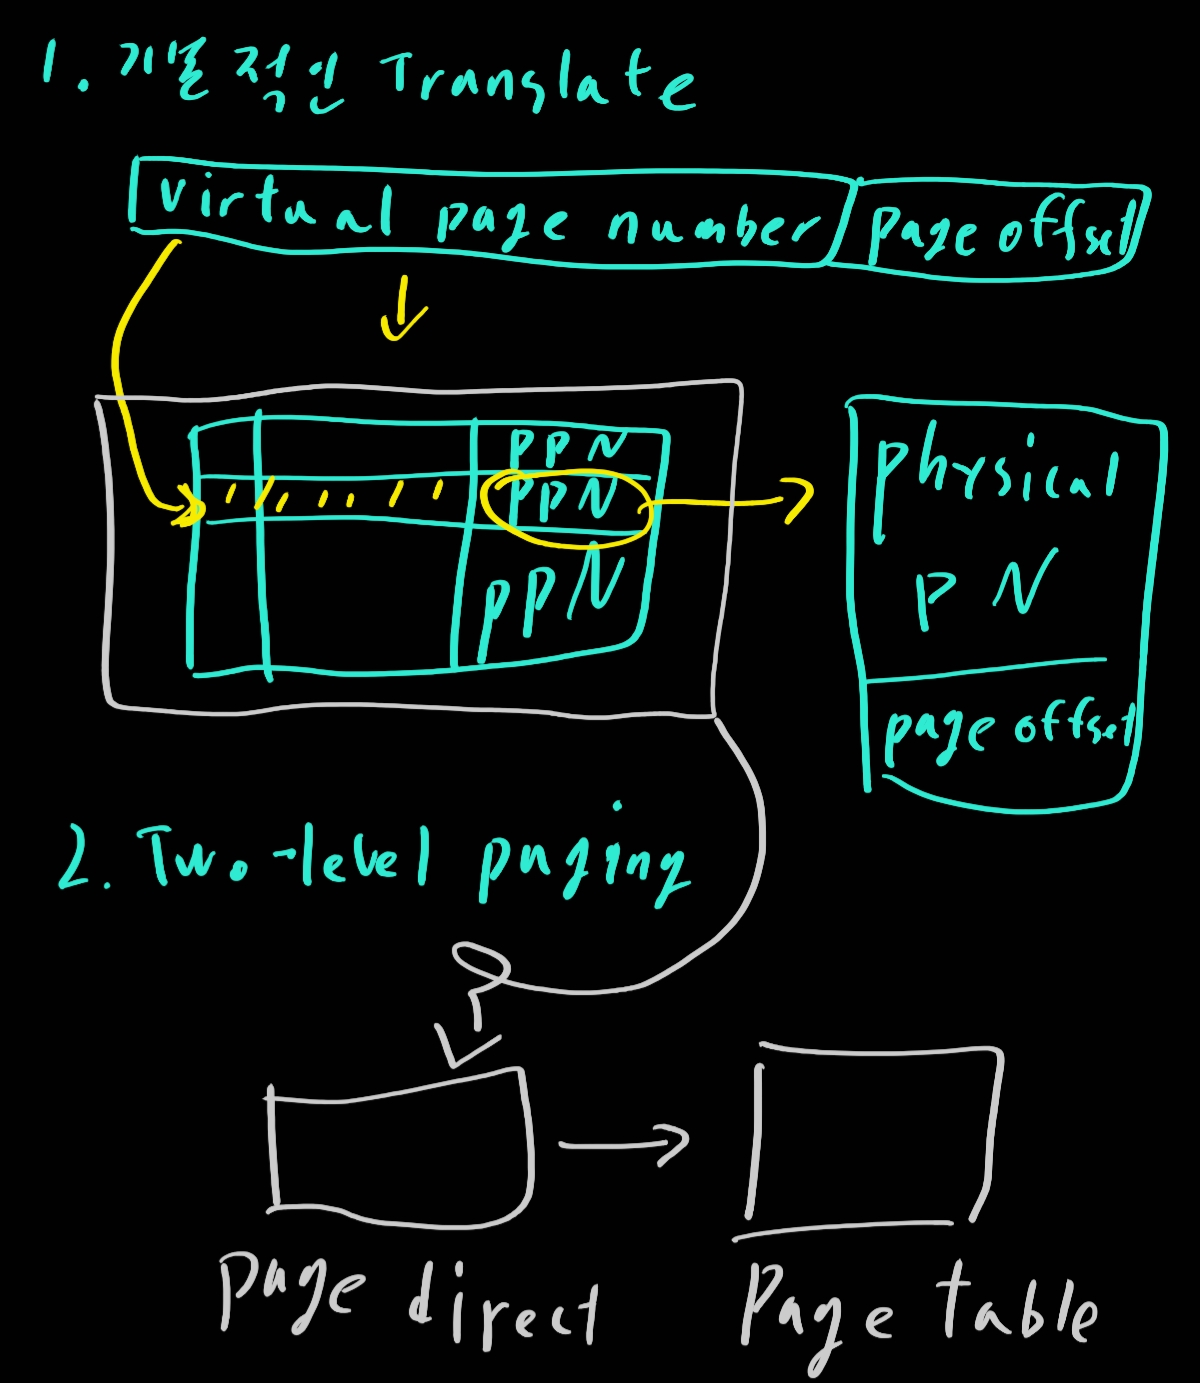 1. 기본적인 Translate
virtual page number page offset
PPN
PPN
PPN
physical
PN
page offset
2. Two-level paging
page direct
Page table